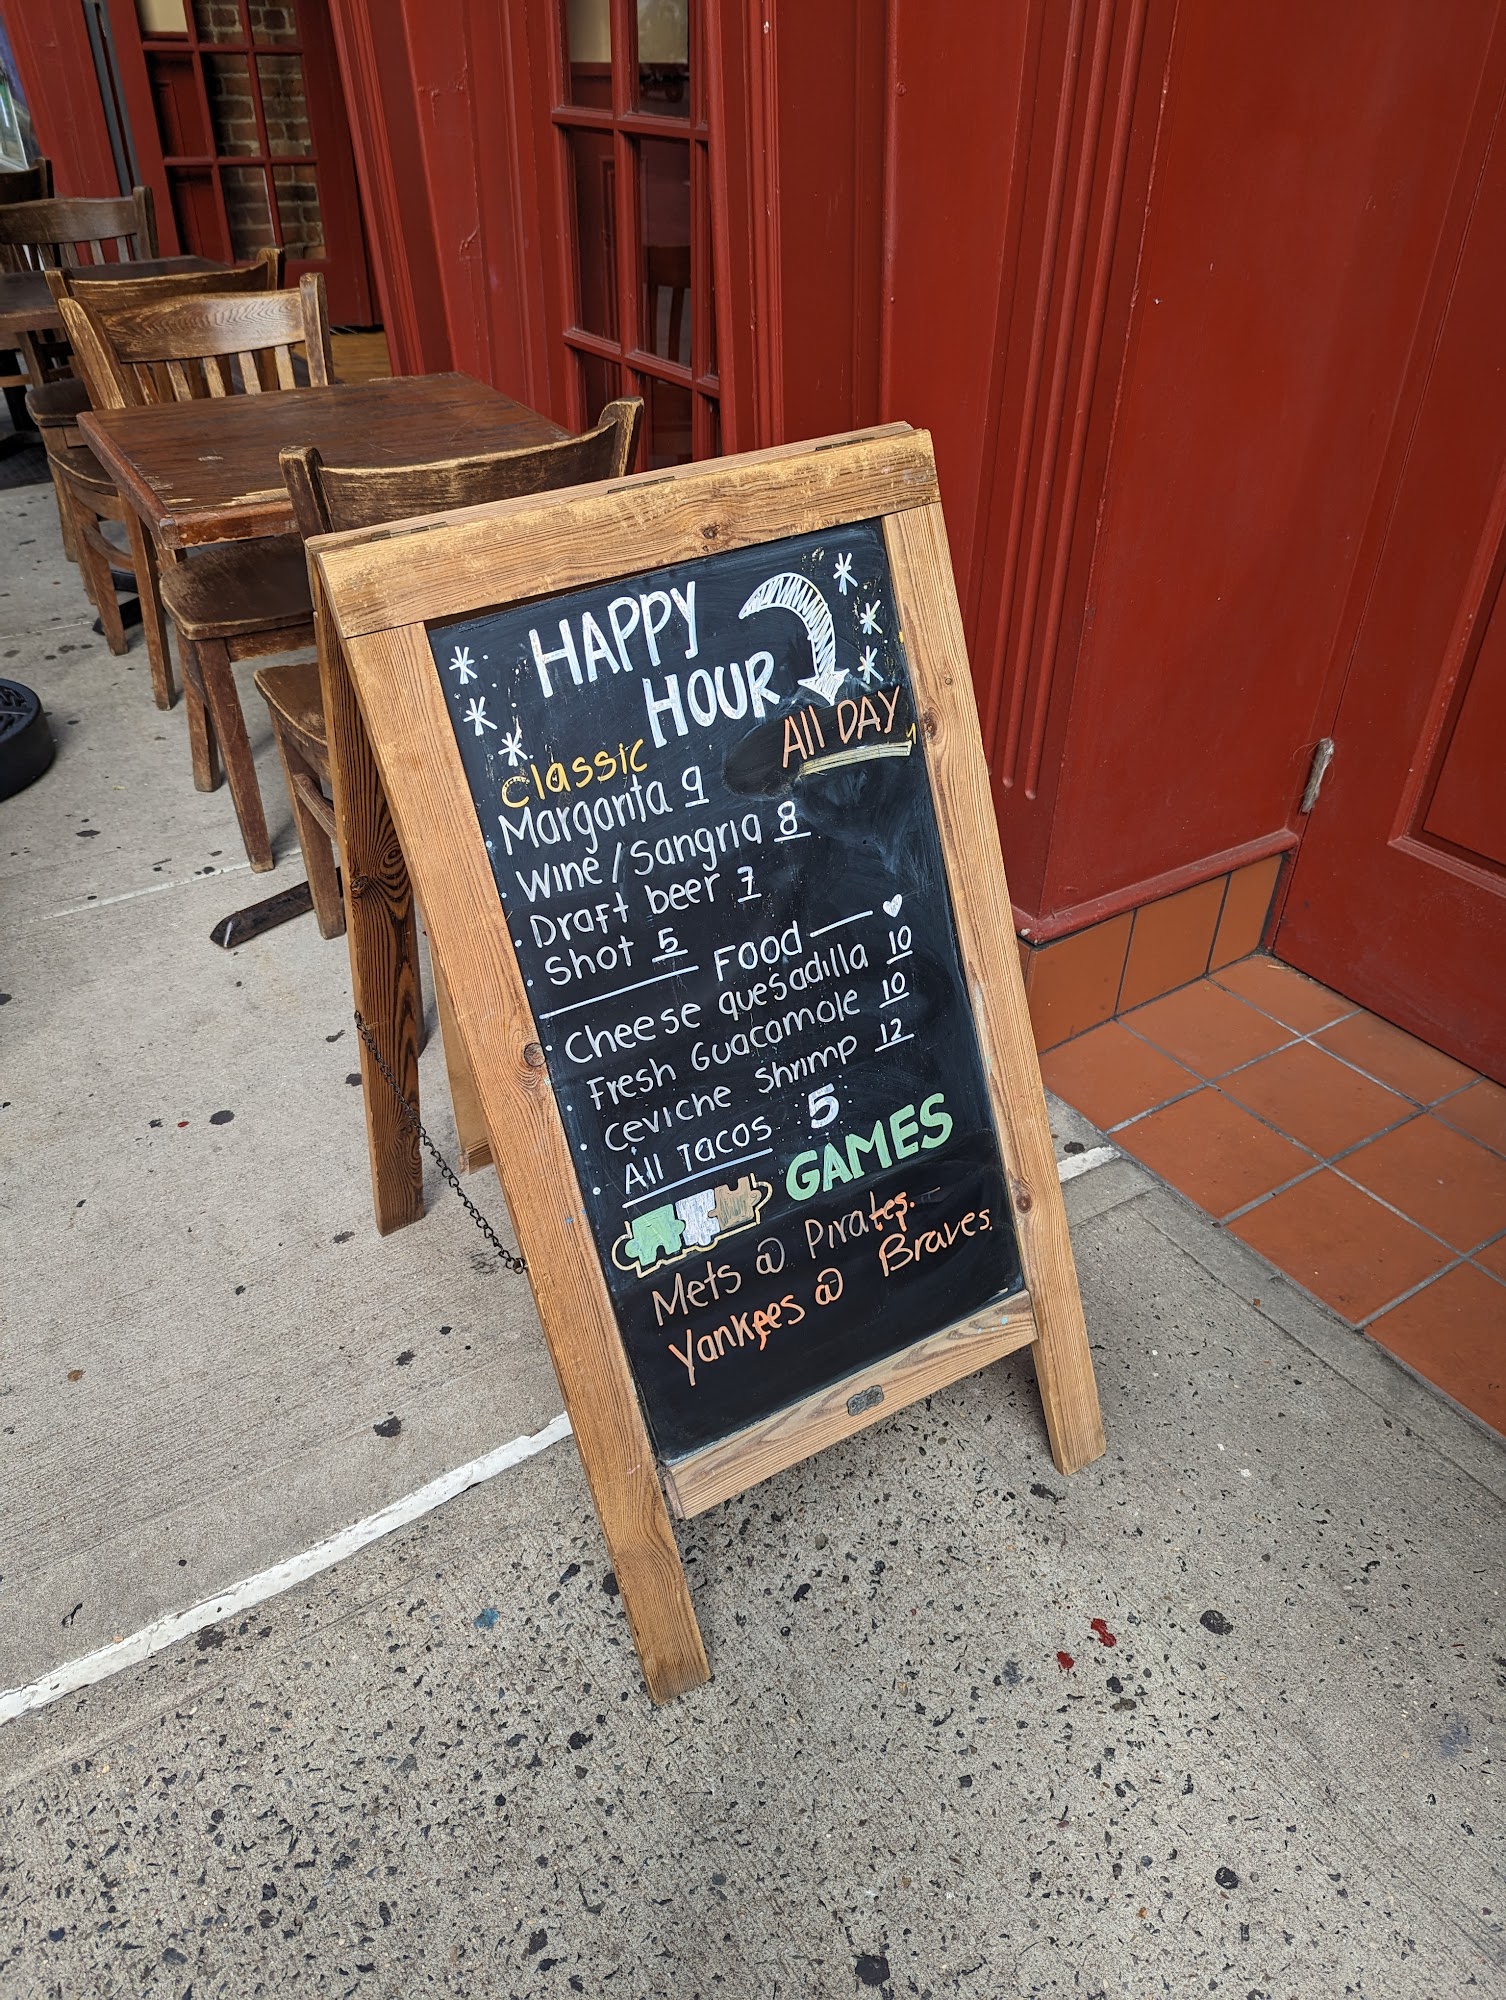 HAPPY
HOUR
All DAY
Classic
Margarita 9
Wine/Sangria 8
Draft beer 7
Shot 5
Food
Cheese quesadilla 10
Fresh Guacamole 10
Ceviche Shrimp 12
All Tacos 5
GAMES
Mets @ Pirates.
Yankees @ Braves.